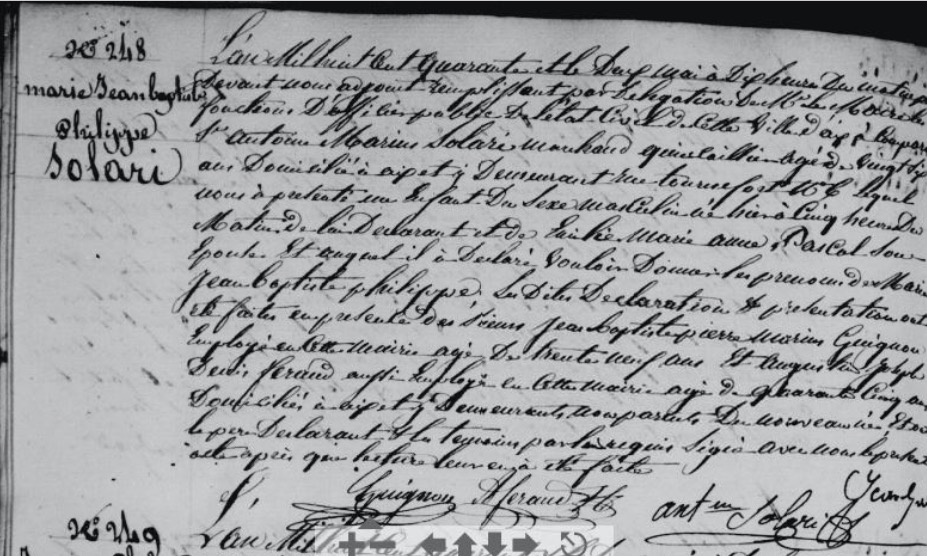 No 248
marie Jean baptiste
Philippe
Solari
L'an Mil huit Cent quarante et le Deux mai à Dix heures Du matin
Devant nous adjoint remplissant par Délégation De Mr le Maire les
fonctions D'officier public De l'état Civil de Cette Ville d'aix a Comparu
Sr antoine Marius Solari marchand agé de vingt six
ans Domicilié à aix et y Demeurant rue tournefort No lequel
nous à présenté un Enfant Du Sexe masculin né hier à Cinq heures Du
Matin de lui Declarant et de Marie anne Pascal Son
Epouse Et auquel il à Declaré Vouloir Donner les prenoms de Marie
Jean baptiste philippe, les Dites Declaration & présentation ont
été faites en présence des Sieurs Jean baptiste pierre marius Guignon
Employé en Cette mairie agé De trente neuf ans Et augustin Joseph
Denis feraud aussi Employé en Cette mairie agé de quarante Cinq ans
Domiciliés à aix et y Demeurants non parents Du nouveau né Et
le père Declarant & les témoins par lui requis Signé avec nous le présent
acte après que lecture leur en à été faite
Guignon A feraud ant Solari
No 249
L'an Mil